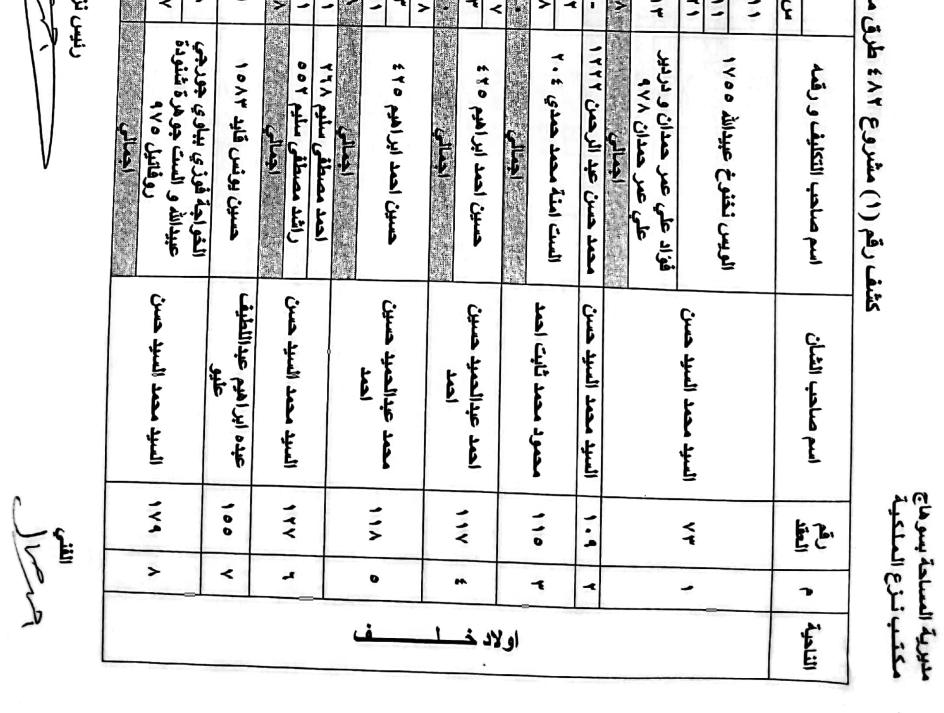 مديرية المساحة بسوهاج
مكتب نزع الملكية
كشف رقم (١) مشروع ٤٨٢ طرق
الناحية
م
رقم العقد
اسم صاحب الشان
اسم صاحب التكليف و رقمه
س
اولاد خلف
١
٧٣
السيد محمد السيد حسن
الويس نخنوخ عبيدالله ١٧٥٥
فؤاد علي عمر حمدان و دردير
علي عمر حمدان ٩٧٨
اجمالي
٢
١٠٩
السيد محمد السيد حسن
محمد حسن عبد الرحمن ١٢٢٢
٣
١١٥
محمود محمد ثابت احمد
الست امنة محمد حمدي ٢٠٤
اجمالي
٤
١١٧
احمد عبدالحميد حسين
احمد
حسين احمد ابراهيم ٤٢٥
اجمالي
٥
١١٨
محمد عبدالحميد حسين
احمد
حسين احمد ابراهيم ٤٢٥
اجمالي
٦
١٢٧
السيد محمد السيد حسن
احمد مصطفى سليم ٢٦٨
راشد مصطفى سليم ٥٥٢
اجمالي
٧
١٥٥
عبده ابراهيم عبداللطيف
عليو
حسين يونس قليد ١٥٨٣
٨
١٧٩
السيد محمد السيد حسن
الخواجة فوزي بباوي جورجي
عبيدالله و الست جوهرة شنودة
روفائيل ٩٧٥
اجمالي
الفني
رئيس